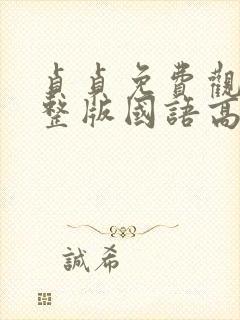 貞貞免費觀
整版國語高
誠希